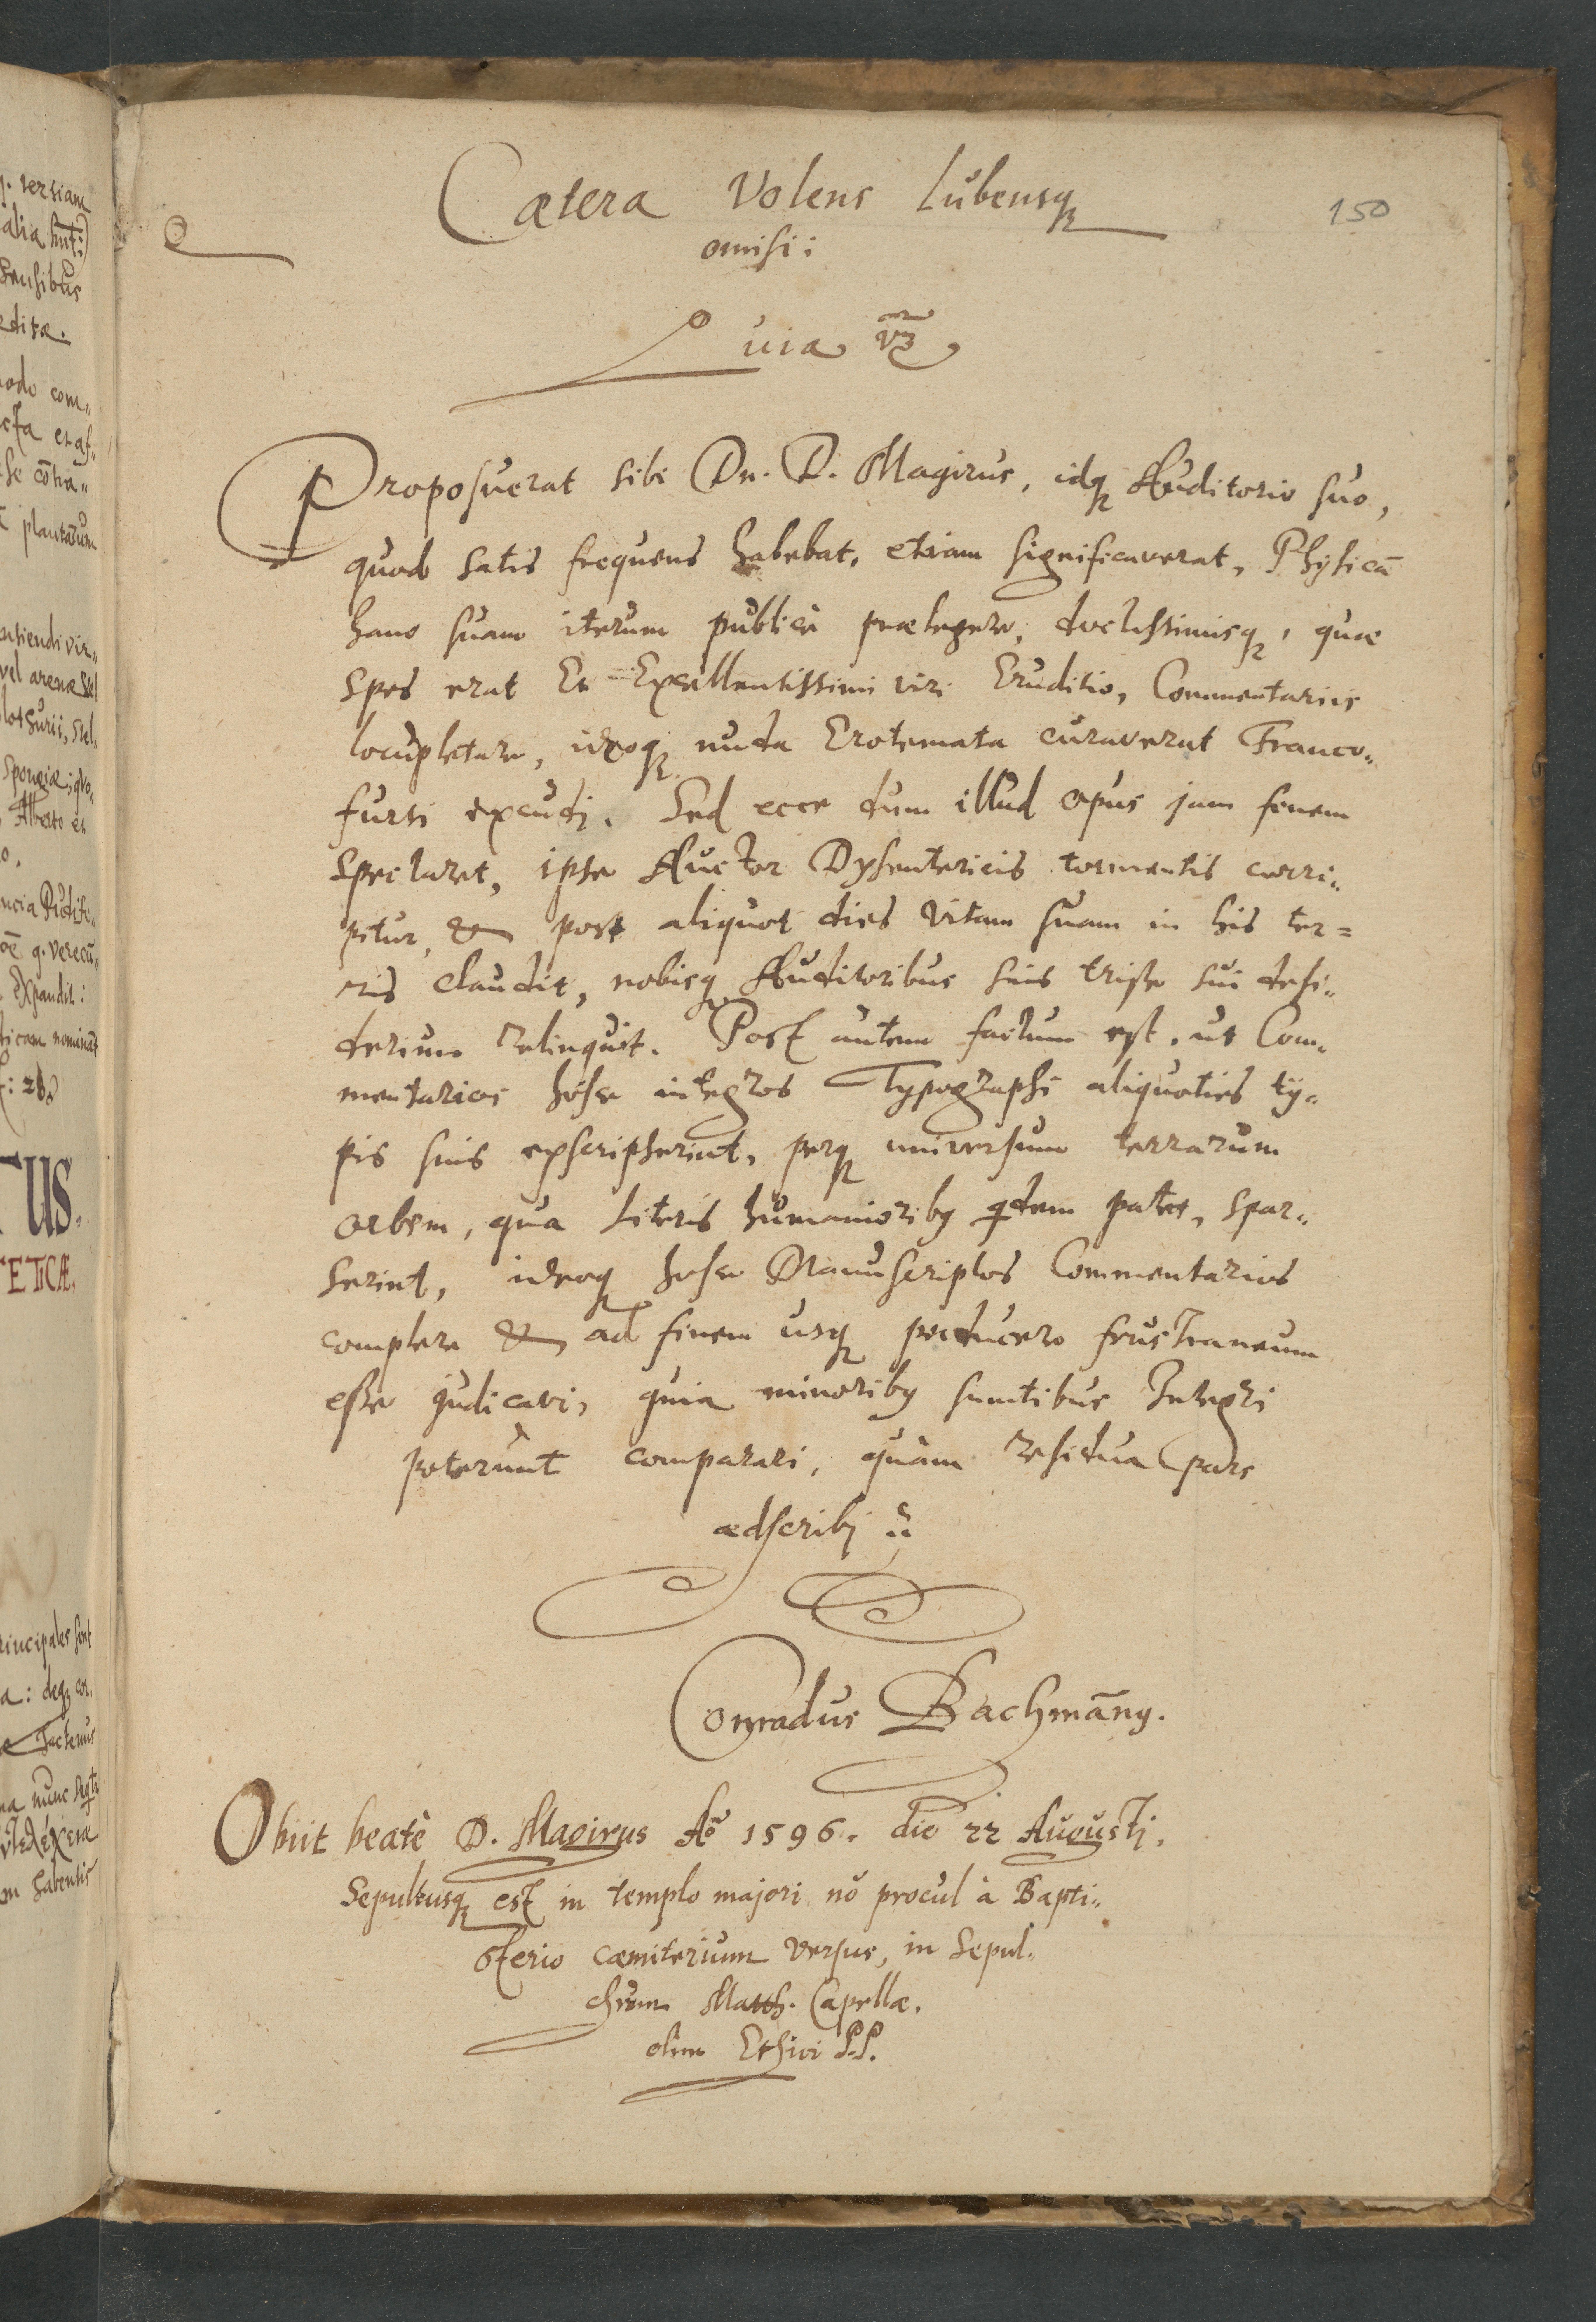 Cætera Volens Lubensq₃
150
omisi:
uia vz
Proposuerat sibi Dn. D. Magirus, idq₃ Auditorio suo,
quod satis frequens habebat, etiam significaverat, Physicā
hanc suam iterum publicè prælegere, doctissimisq₃, quæ
spes erat Et Excellentissimi viri Eruditio, Commentarijs
locupletare, ideoq₃ nuda Erotemata curaverat Franco„
furti excudj. Sed ecce dum illud opus jam finem
spectaret, ipse Auctor Dysentericis tormentis corri„
pitur, & post aliquot dies vitam suam in his ter=
ris claudit, nobisq₃ Auditoribus suis triste sui desi„
derium relinquit. Post autem factum est, ut Com„
mentarios hosce integros Typographi aliquoties ty„
pis suis exscripserint, perq₃ universum terrarum
orbem, qua Literis humanioriby qdem patet, spar„
serint, ideoq₃ hosce Manuscriptos Commentarios
complere & ad finem usq₃ perducere frustraneum
esse judicavi, quia minoriby sumtibus Integri
poterunt comparari, quàm residua pars
adscribj
Conradus Bachmāny.
Obiit beatè D. Magirus Aō 1596. die 22 Augustj.
Sepultusq₃ est in templo majori nō procul à Bapti„
sterio cæmiterium versus, in Sepul„
chrum Matth. Capellæ.
olim Ethici P.P.